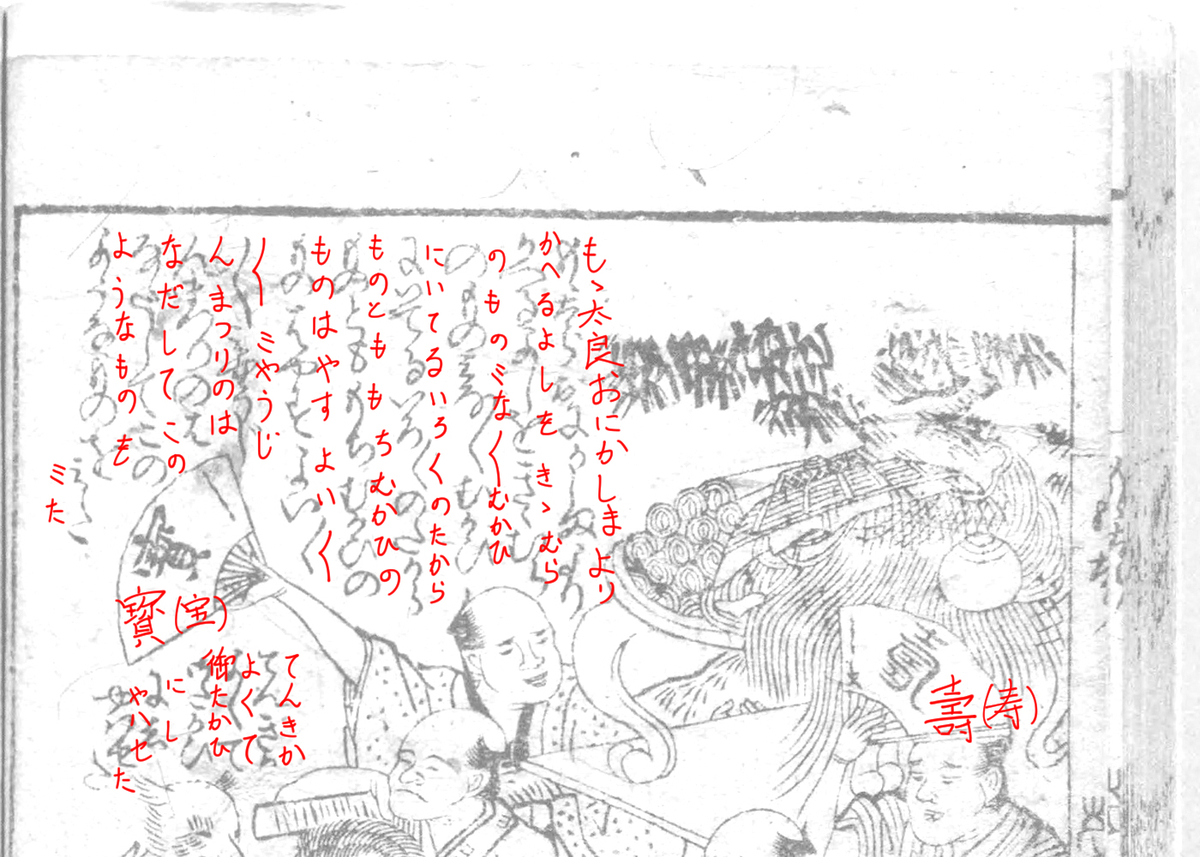 もゝ太良おにかしまより
かへるよしを きゝむら
のものミなくむかひ
にいてるいろくのたから
ものとももちむかひの
ものはやすよいく
くミやうじ
んまつりのは
なだしてこの
ようなものを
ミた
寶(宝)
てんきか
よくて
御たかひ
にし
やハセた
壽(寿)